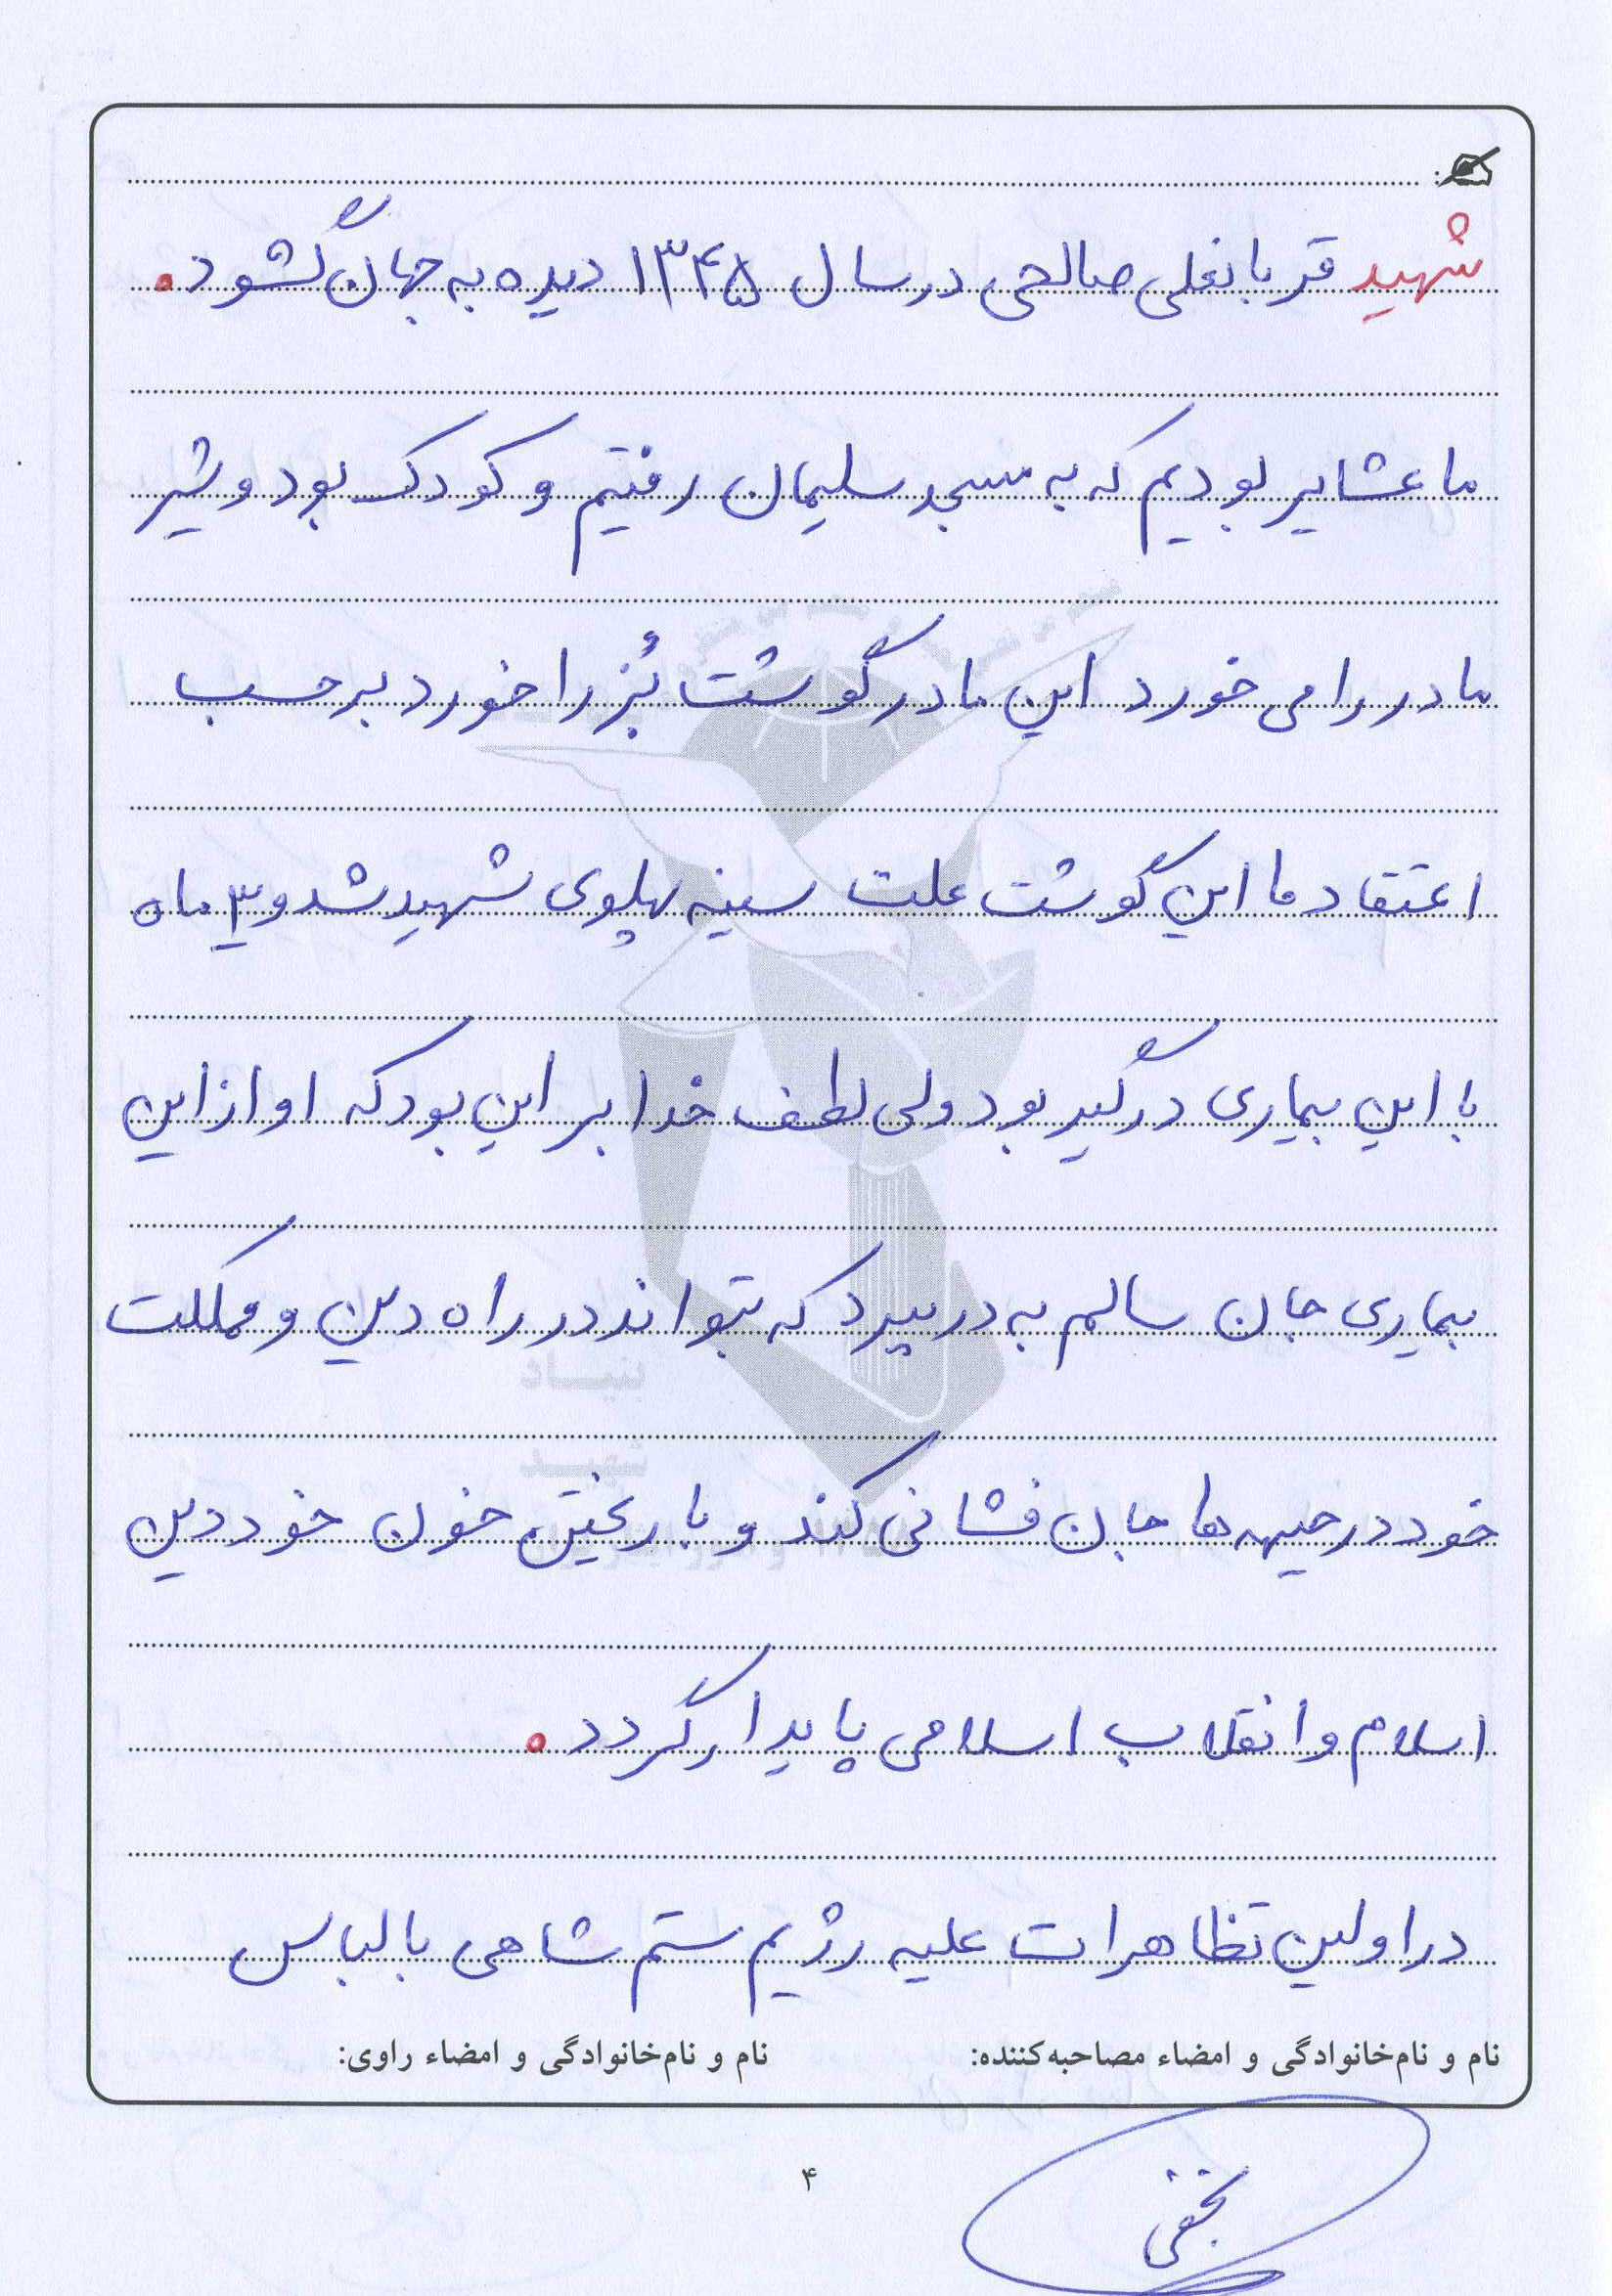 شهید قربانعلی صالحی در سال ۱۳۴۵ دیده به جهان گشود.
ما عشایر بودیم که به مسجد سلیمان رفتیم و کودک بود و شیر
مادر را می خورد این مادر گوشت بُز را خورد بر حسب
اعتقاد ما این گوشت علت سینه پهلوی شهید شد و ۳ ماه
با این بیماری درگیر بود ولی لطف خدا بر این بود که او از این
بیماری جان سالم به در ببرد که بتواند در راه دین و مملکت
خود در جبهه ها جان فشانی کند و با ریختن خون خود دین
اسلام و انقلاب اسلامی پایدار گردد.
در اولین تظاهرات علیه رژیم ستم شاهی با لباس
نام و نام‌خانوادگی و امضاء مصاحبه‌کننده: نام و نام‌خانوادگی و امضاء راوی:
۴
نجفی
بنیاد
شهید